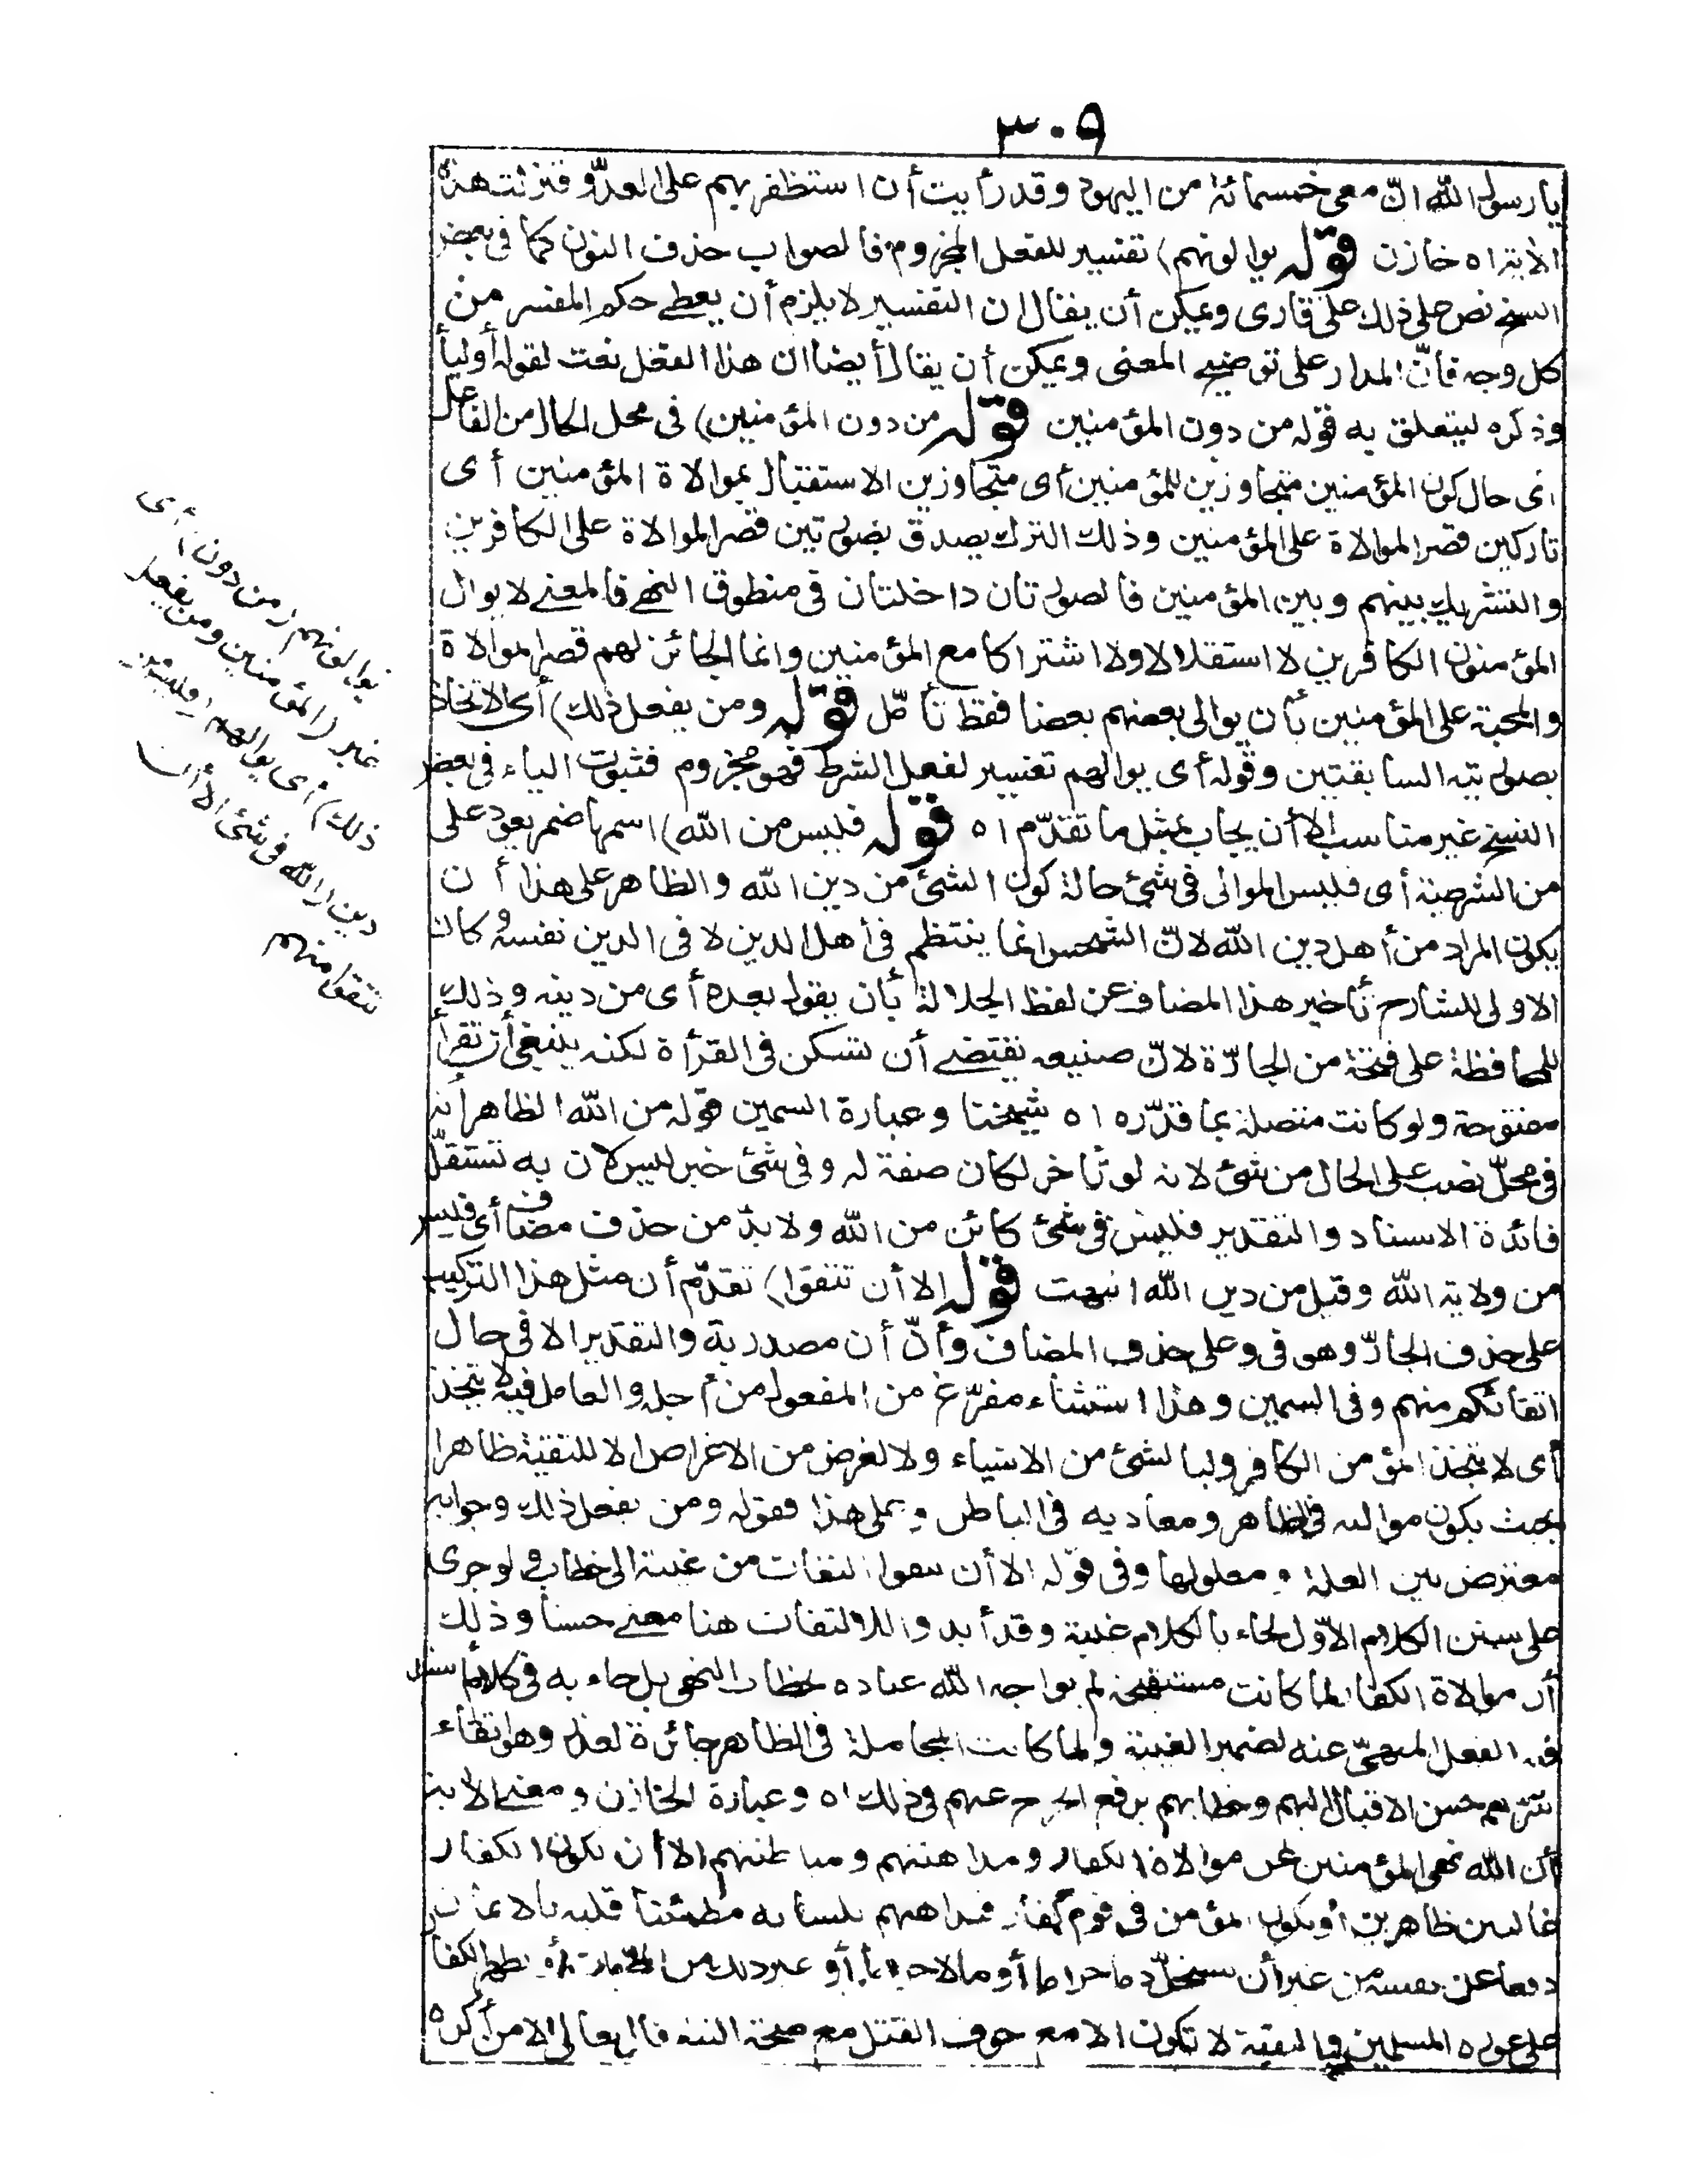 ٣٠٩
يا رسول الله انّ معى خمسمائة من اليهود وقد رأيت أن استظفر بهم على العدوّ فنزلت هذه
الاية اه خازن قوله يوالونهم) تفسير للفعل المجزوم فالصواب حذف النون كما فى بعض
النسخ نص على ذلك على قارى ويمكن أن يقال ان التفسير لا يلزم أن يعطى حكم المفسر من
كل وجه فانّ المدار على توضيح المعنى ويمكن أن يقال أيضا ان هذا الفعل نعت لقوله أولياء
وذكره ليتعلق به قوله من دون المؤمنين قوله من دون المؤمنين) فى محل الحال من الفاعل
اى حال كون المؤمنين متجاوزين للمؤمنين أى متجاوزين الاستقبال بموالاة المؤمنين أى
تاركين قصر الموالاة على المؤمنين وذلك الترك يصدق بصورتين قصر الموالاة على الكافرين
والتشريك بينهم وبين المؤمنين فالصورتان داخلتان فى منطوق النهى فالمعنى لا يوال
المؤمنون الكافرين لا استقلالا ولا اشتراكا مع المؤمنين وانما الجائز لهم قصر الموالاة
والمحبة على المؤمنين بأن يوالى بعضهم بعضا فقط تأمّل قوله ومن يفعل ذلك) أى الاتخاذ
بصورتيه السابقتين وقوله أى يوالهم تفسير لفعل الشرط فهو مجزوم فثبوت الياء فى بعض
النسخ غير مناسب الا أن يجاب بمثل ما تقدّم اه قوله فليس من الله) اسمها ضمير يعود على
من الشرطية أى فليس الموالى فى شئ حالة كون الشئ من دين الله والظاهر على هذا أن
يكون المراد من أهل دين الله لانّ الشخص انما ينتظم فى أهل الدين لا فى الدين نفسه وكان
الاولى للشارح تأخير هذا المضاف عن لفظ الجلالة بأن يقول بعده أى من دينه وذلك
للمحافظة على فتحة من الجارّة لانّ صنيعه يقتضى أن تسكن فى القرأة لكنه ينبغى أن تقرأ
مفتوحة ولو كانت متصلة بما قدّره اه شيخنا وعبارة السمين قوله من الله الظاهر أنه
فى محلّ نصب على الحال من شئ لانه لو تأخر لكان صفة له وفى شئ خبر ليس لان به تستقلّ
فائدة الاسناد والتقدير فليس فى شئ كائن من الله ولا بدّ من حذف مضاف أى فليس
من ولاية الله وقيل من دين الله انتهت قوله الا أن تتقوا) تقدّم أن مثل هذا التركيب
على حذف الجارّ وهو فى وعلى حذف المضاف وأنّ أن مصدرية والتقدير الا فى حال
اتقائكم منهم وفى السمين وهذا استثناء مفرّغ من المفعول من أجله والعامل فيه لا يتخذ
أى لا يتخذ المؤمن الكافر وليا لشئ من الاشياء ولا لغرض من الاغراض الا للتقية ظاهرا
بحيث يكون مواليه فى الظاهر ومعاديه فى الباطن وعلى هذا فقوله ومن يفعل ذلك وجوابه
معترض بين العلة ومعلولها وفى قوله الا أن تتقوا التفات من غيبة الى خطاب ولو جرى
على سنن الكلام الاوّل لجاء بالكلام غيبة وقد أبدوا للالتفات هنا معنى حسنا وذلك
أن موالاة الكفار لما كانت مستقبحة لم يواجه الله عباده بخطاب النهى بل جاء به فى كلام أسند
فيه الفعل المنهىّ عنه لضمير الغيبة ولما كانت المجاملة فى الظاهر جائزة لعذر وهو اتقاء
شرّهم حسن الاقبال اليهم وخطابهم برفع الحرج عنهم فى ذلك اه وعبارة الخازن ومعنى الاية
أن الله نهى المؤمنين عن موالاة الكفار ومداهنتهم ومباطنتهم الا أن يكون الكفار
غالبين ظاهرين أو يكون المؤمن فى قوم كفار فيداهنهم بلسانه مطمئنا قلبه بالايمان
دفعا عن نفسه من غير أن يستحلّ دما حراما أو مالا حراما أو غير ذلك من المحرمات أو يظهر الكفار
على عورة المسلمين والتقية لا تكون الا مع خوف القتل مع صحة النية قال تعالى الا من أكره
يوالونهم (من دون) أى
غير (المؤمنين ومن يفعل
ذلك) أى يوالهم (فليس من)
دين (الله فى شئ الا أن
تتقوا منهم